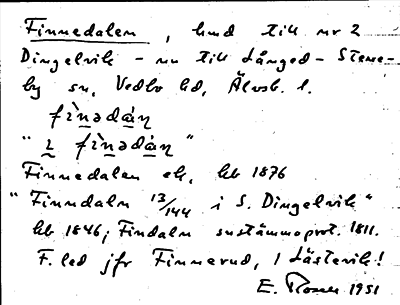 Finnedalen, hmd till nr 2
Dingelvik - nu till Långed - Stene-
by sn, Vedbo hd, Älvsb. l.
fìn̥ədán̥
"i̯ fìn̥ədán̥"
Finnedalen ek. kb 1876
"Finndaln 13/144 i S. Dingelvik"
kb 1846; Findaln sustämmoprot. 1811.
F. led jfr Finnerud, 1 Lästevik!
E. 1951